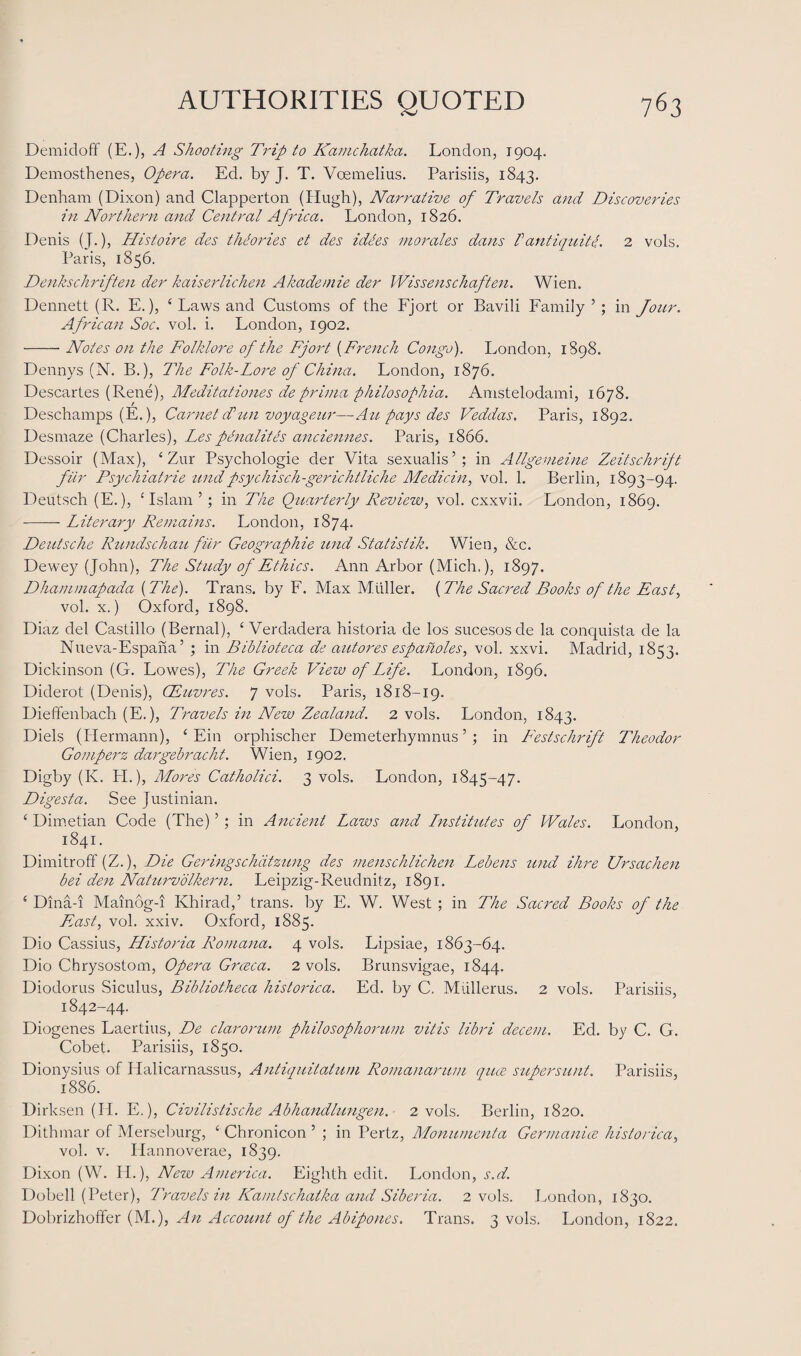 AUTHORITIES QUOTED 763
Demidoff (E.), A Shooting Trip to Kamchatka. London, 1904.
Demosthenes, Opera. Ed. by J. T. Vœmelius. Parisiis, 1843.
Denham (Dixon) and Clapperton (Hugh), Narrative of Travels and Discoveries
in Northern and Central Africa. London, 1826.
Denis (J.), Histoire des théories et des idées morales dans l'antiquité. 2 vols.
Paris, 1856.
Denkschriften der kaiserlichen Akademie der Wissenschaften. Wien.
Dennett (R. E.), ‘Laws and Customs of the Fjort or Bavili Family’; in Jour.
African Soc. vol. i. London, 1902.
—— Notes on the Folklore of the Fjort (French Congo). London, 1898.
Dennys (N. B.), The Folk-Lore of China. London, 1876.
Descartes (René), Meditationes de prima philosophia. Amstelodami, 1678.
Deschamps (É.), Carnet d'un voyageur—Au pays des Veddas. Paris, 1892.
Desmaze (Charles), Les pénalités anciennes. Paris, 1866.
Dessoir (Max), ‘Zur Psychologie der Vita sexualis’; in Allgemeine Zeitschrift
für Psychiatrie und psychisch-gerichtliche Medicin, vol. l. Berlin, 1893-94.
Deutsch (E.), ‘Islam’; in The Quarterly Review, vol. cxxvii. London, 1869.
—— Literary Remains. London, 1874.
Deutsche Rundschau für Geographie und Statistik. Wien, &c.
Dewey (John), The Study of Ethics. Ann Arbor (Mich.), 1897.
Dhammapada (The). Trans. by F. Max Müller. (The Sacred Books of the East,
vol. x.) Oxford, 1898.
Diaz del Castillo (Bernal), ‘Verdadera historia de los sucesos de la conquista de la
Nueva-España’; in Biblioteca de autores españoles, vol. xxvi. Madrid, 1853.
Dickinson (G. Lowes), The Greek View of Life. London, 1896.
Diderot (Denis), Œuvres. 7 vols. Paris, 1818-19.
Dieffenbach (E.), Travels in New Zealand. 2 vols. London, 1843.
Diels (Hermann), ‘Ein orphischer Demeterhymnus’; in Festschrift Theodor
Gomperz dargebracht. Wien, 1902.
Digby (K. H.), Mores Catholici. 3 vols. London, 1845-47.
Digesta. See Justinian.
‘Dimetian Code (The)’; in Ancient Laws and Institutes of Wales. London,
1841.
Dimitroff (Z.), Die Geringschätzung des menschlichen Lebens und ihre Ursachen
bei den Naturvölkern. Leipzig-Reudnitz, 1891.
‘Dînâ-î Maînôg-î Khirad,’ trans. by E. W. West; in The Sacred Books of the
East, vol. xxiv. Oxford, 1885.
Dio Cassius, Historia Romana. 4 vols. Lipsiae, 1863-64.
Dio Chrysostom, Opera Græca. 2 vols. Brunsvigae, 1844.
Diodorus Siculus, Bibliotheca historica. Ed. by C. Müllerus. 2 vols. Parisiis,
1842-44.
Diogenes Laertius, De clarorum philosophorum vitis libri decem. Ed. by C. G.
Cobet. Parisiis, 1850.
Dionysius of Halicarnassus, Antiquitatum Romanarum quæ supersunt. Parisiis,
1886.
Dirksen (H. E.), Civilistische Abhandlungen. 2 vols. Berlin, 1820.
Dithmar of Merseburg, ‘Chronicon’; in Pertz, Monumenta Germaniæ historica,
vol. v. Hannoverae, 1839.
Dixon (W. H.), New America. Eighth edit. London, s.d.
Dobell (Peter), Travels in Kamtschatka and Siberia. 2 vols. London, 1830.
Dobrizhoffer (M.), An Account of the Abipones. Trans. 3 vols. London, 1822.